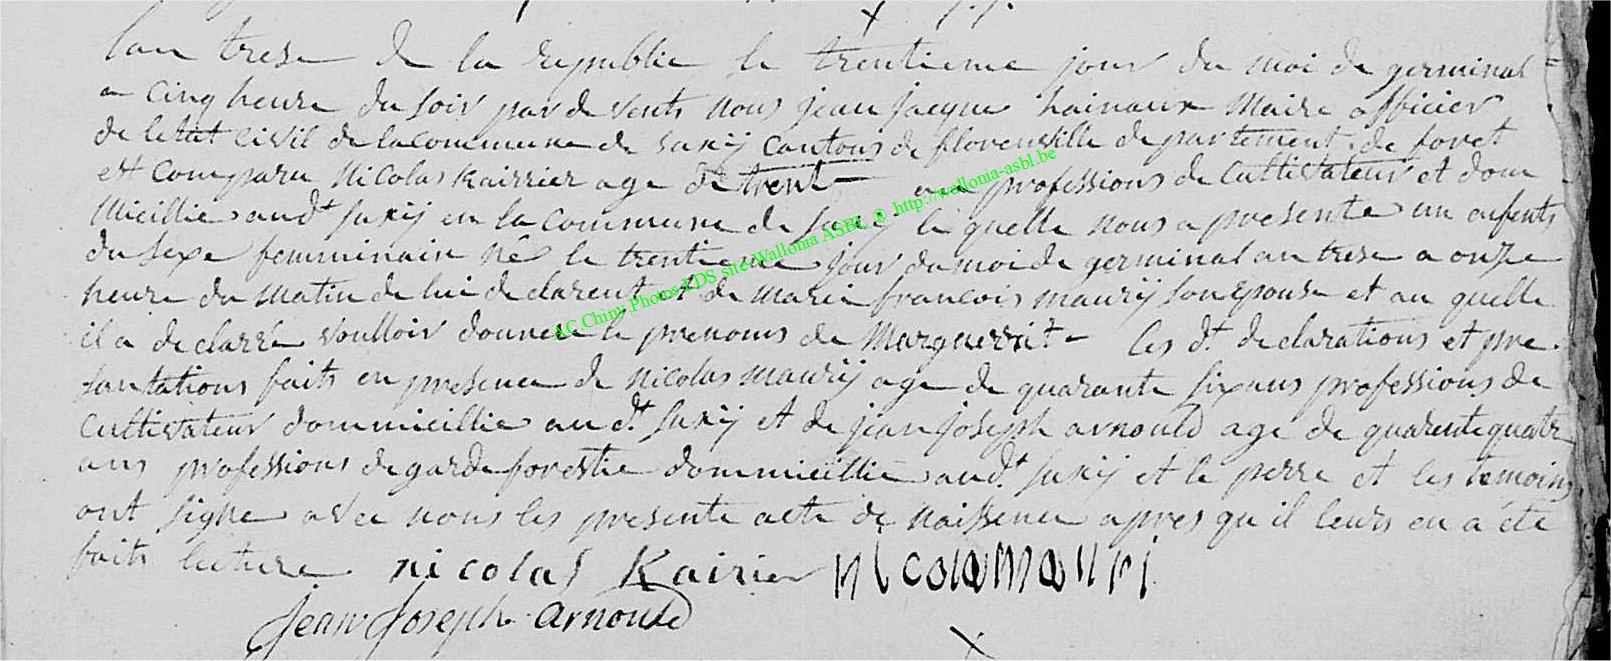 lan trese de la republie le trentieme jour du moi de germinal
a cinq heure du soir par de vents nous jean jacque hainaux Maire officier
de letat civil de la commune de suxÿ cantons de florenville departement de foret
est comparu Nicolas Kairrier age de trent ans professions de cultivateur et dom
micillie aud.t suxÿ en la commune de suxÿ le quelle nous a presente un enfents
du sexe femminain né le trentieme jour du moi de germinal an trese a onze
heure du matin de lui declarent et de marie francois mauriÿ son epouse et au quelle
il a declarré voulloir donner le prenoms de Marguerrit - les d.t declarations et pre
santations faits en presence de nicolas mauriÿ age de quarante six ans professions de
cultivateur dommicillie au d.t suxÿ et de jean joseph arnould age de quarente quatr
ans professions de garde forestie dommicillie aud.t suxÿ et le perre et les temoins
ont signe avec nous les presente acte de naissence apres qu il leurs en a été
faits lecture nicolas Kairier nicola mauri
Jean Joseph Arnould
AC Chiny Photos EDS site Wallonia ASBL @ http://wallonia-asbl.be